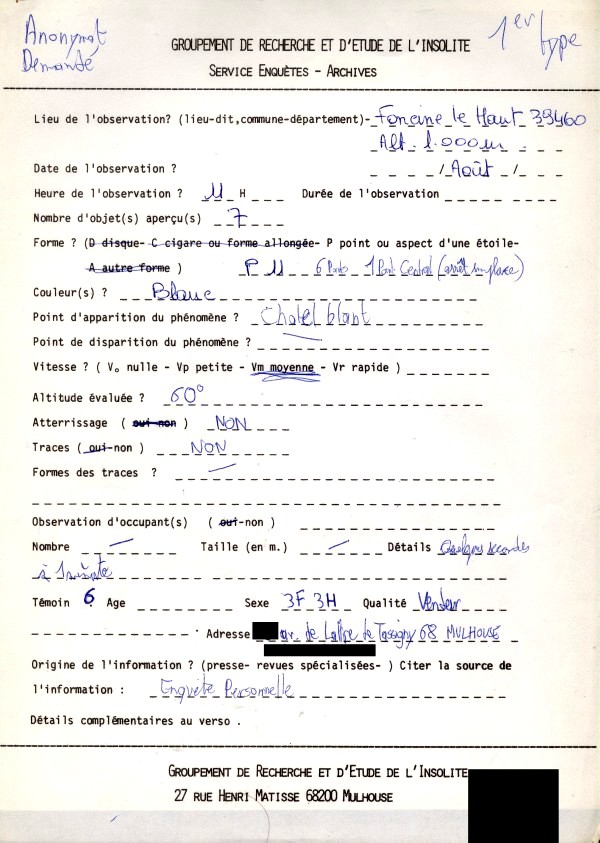 Anonymat
Demandé
1er type
GROUPEMENT DE RECHERCHE ET D'ETUDE DE L'INSOLITE
SERVICE ENQUÊTES - ARCHIVES
Lieu de l'observation? (lieu-dit,commune-département)- Foncine le Haut 39460
Alt. 1.000m
Date de l'observation ? / Août /
Heure de l'observation ? 11 H Durée de l'observation
Nombre d'objet(s) aperçu(s) 7
Forme ? (D disque- C cigare ou forme allongée- P point ou aspect d'une étoile-
A autre forme ) P 11 6 Points 1 Point Central (arrêt sur place)
Couleur(s) ? Blanc
Point d'apparition du phénomène ? Chatel blanc
Point de disparition du phénomène ?
Vitesse ? ( Vo nulle - Vp petite - Vm moyenne - Vr rapide )
Altitude évaluée ? 60°
Atterrissage ( oui-non ) NON
Traces ( oui-non ) NON
Formes des traces ?
Observation d'occupant(s) ( oui-non )
Nombre Taille (en m.) Détails Quelques secondes
à 1 minute
Témoin 6 Age Sexe 3F 3H Qualité Vendeur
Adresse av. de Lattre de Tassigny 68 MULHOUSE
Origine de l'information ? (presse- revues spécialisées- ) Citer la source de
l'information : Enquête Personnelle
Détails complémentaires au verso .
GROUPEMENT DE RECHERCHE ET D'ETUDE DE L'INSOLITE
27 RUE HENRI MATISSE 68200 MULHOUSE